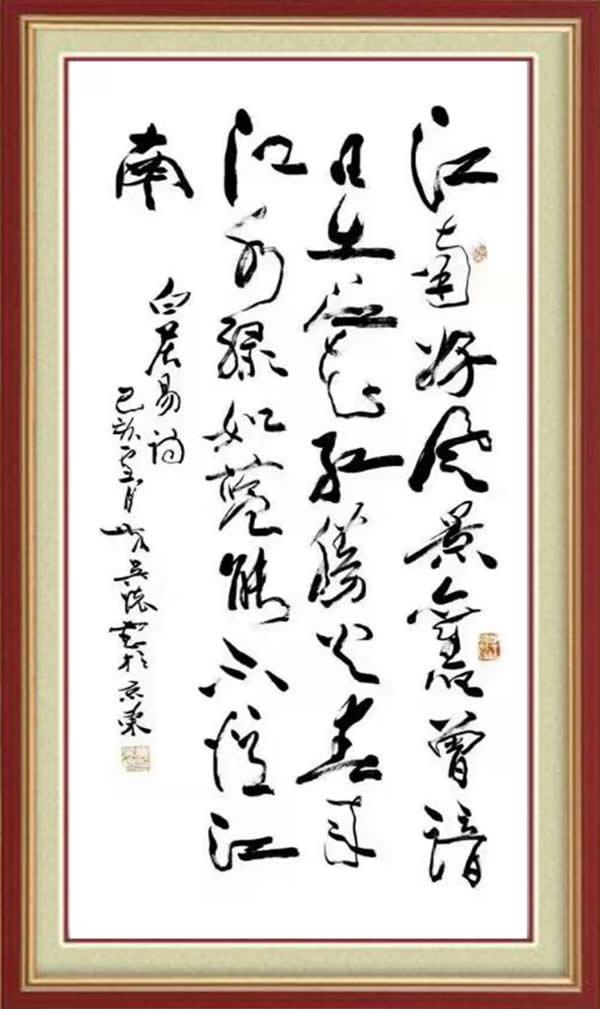 江南好风景舊曾谙
日出江花红勝火春来
江水绿如蓝能不憶江
南
白居易诗
己亥 月 吴 於京東